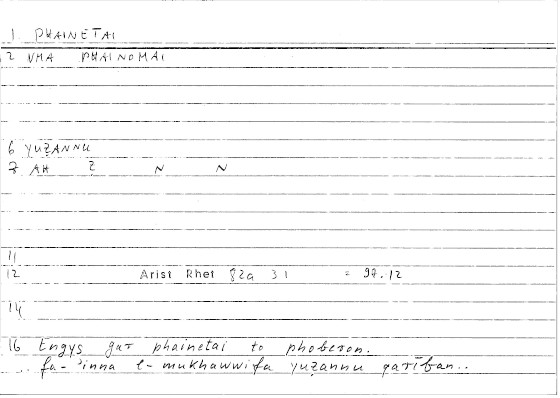 1 PHAINETAI
2 VMA PHAINOMAI
6 YUẒANNU
7 AH Z N N
11
12 Arist Rhet 82a 31 = 97.12
14
16 Engys gar phainetai to phoberon.
fa-'inna l-mukhawwifa yuẓannu qarīban..